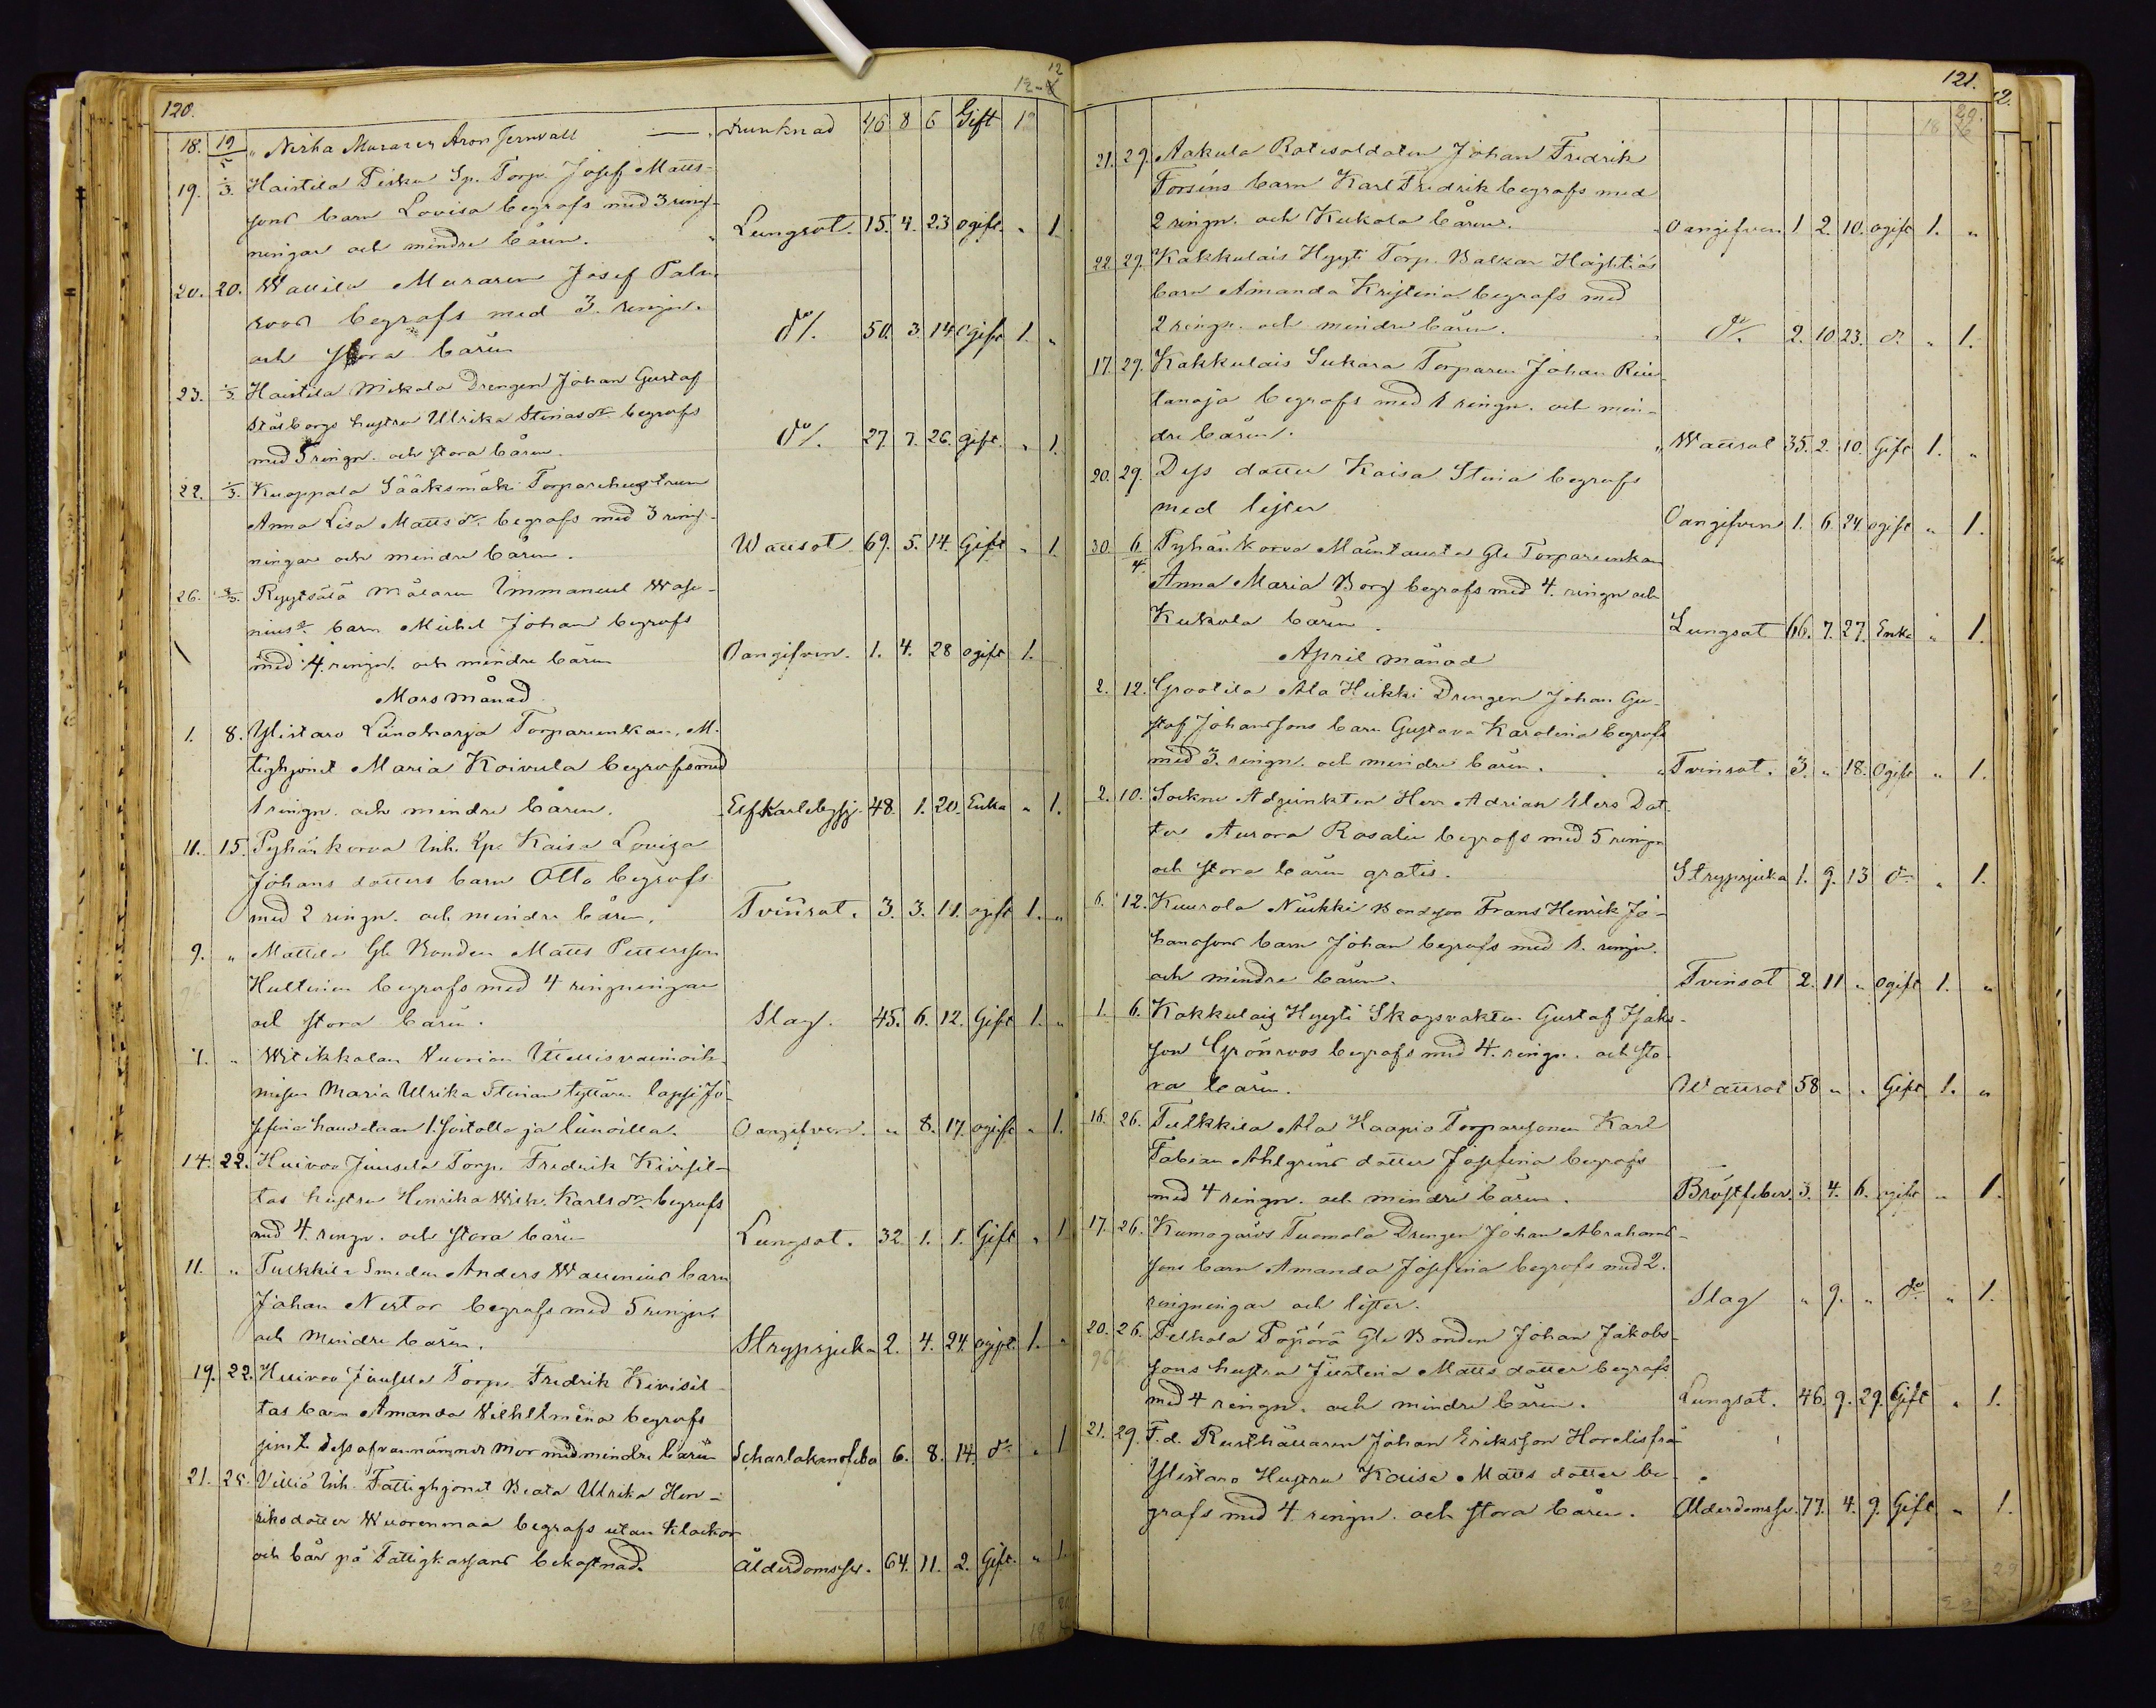 120.
12
12-
18. 19/5 " Nerha Muraren Aron Jernvall — drunknad 46 8 6 Gift 1
19. 1/3. Haistila Pesku Sp. Torp. Josef Matts-
sons barn Lovisa begrafs med 3 ring-
ningar och mindre båren. Lungsot. 15. 4. 23 ogift. " 1.
20. 20. Wallila Muraren Josef Palm
roos begrafs med 3. ringn.
och stora båren do/. 50. 3. 14 Ogift 1. "
23. 1/3. Haistila Mikola Drengen Johan Gustaf
Stålborgs hustru Ulrika Stinas dr. begrafs
med 5 ringn. och stora båren. do/. 27. 7. 26. gift. " 1.
22. 1/3. Kuoppala Sääksmäki Torparehustrun
Anna Lisa Matts dr. begrafs med 3 ring-
ningar och mindre båren. Wattsot 69. 5. 14. Gift " 1.
26. 8/3. Ryytsälä Målaren Immanuel Wase-
nius's barn Michel Johan begrafs
med 4. ringn. och mindre båren Oangifven. 1. 4. 28 ogift 1.
Mars månad
1. 8. Ylistaro Liinaharja Torpareenkan, M.
tighjonet Maria Koivula begrafs med
1 ringn. och mindre båren. Elfkarlebysj. 48. 1. 20. Enka " 1.
11. 15. Pyhänkorva Inh. Kp. Kaisa Loviza
Johans dotters barn Otto begrafs
med 2 ringn. och mindre båren. Tvinsot. 3. 3. 11. ogift 1. "
9. " Mattila Gle Bonden Matts Pettersson
96
Hultinen begrafs med 4 ringningar
och stora båren. Slag. 45. 6. 12. Gift 1. "
7. " Witikkalan Vuorion Itellisvaimoih-
misen Maria Ulrika Stinan tyttären lapsi Jo-
sefina haudataan 1. soitolla ja liinoilla. Oangifven. " 8. 17. ogift " 1.
14. 22. Huivoo Juusela Torp. Fredrik Kivisil-
tas hustru Henrika Wilh. Karls dr. begrafs
med 4. ringn. och stora båren Lungsot. 32. 1. 1. Gift " 1
11. " Tulkkila Smeden Anders Wallenius barn
Johan Nestor begrafs med 5 ringn.
och mindre båren. Strypsjuka 2. 4. 24. ogift. 1. "
19. 22. Huivoo Juusela Torp. Fredrik Kivisil
tas barn Amanda Vilhelmina begrafs
jemte dess ofvannämnde mor med mindre båren Scharlakansfeber 6. 8. 14. do " 1
21. 28. Villiö Inh. Fattighjonet Beata Ulrika Hen-
riksdotter Wuorenmaa begrafs utan klockor
och bår på Fattigkassans bekostnad. Ålderdomssv. 64. 11. 2. Gift. " 1.
18
121.
29.
18
21. 29. Aakula Rotesoldaten Johan Fredrik
Forséns barn Karl Fredrik begrafs med
2 ringn. och Kukola båren. Oangifven 1 2. 10. ogift 1. "
22. 29. Kakkulais Hyyti Torp. Balkar Häyhtiös
barn Amanda Kristina begrafs med
2 ringn. och mindre båren. do/. 2. 10. 23. do " 1.
17. 29. Kakkulais Sukara Torparen Johan Rin-
tanoja begrafs med 1 ringn. och min-
dre båren. Wattsot 35. 2. 10. Gift 1. "
20. 29. Dess dotter Kaisa Stina begrafs
med lister Oangifven 1. 6. 24. ogift " 1.
30. 6/4. Pyhänkorva Mäntausta Gle Torpareenkan
Anna Maria Borg begrafs med 4. ringn och
Kukola båren. Lungsot 66. 7. 27. Enka " 1.
April månad
2. 12. Grootila Ala Heikki Drengen Johan Gu-
staf Johanssons barn Gustava Karolina begrafs
med 3. ringn. och mindre båren. Tvinsot. 3. " 18. Ogift " 1.
2. 10. Sockne Adjunkten Herr Adrian Elers Dot-
ter Aurora Rosalie begrafs med 5 ringn
och stora båren gratis. Strypsjuka 1. 9. 13 do " 1.
6. 12. Kuurola Niukki Bondeson Frans Henrik Jo-
hanssons barn Johan begrafs med 1. ringn.
och mindre båren. Tvinsot 2. 11 " ogift 1. "
1. 6. Kakkulais Hyyti Skogsvakten Gustaf Isaks-
son Grönroos begrafs med 4. ringn. och sto-
ra båren. Wattsot 58 " " Gift 1. "
16. 26. Tulkkila Ala Haapio Torparesonen Karl
Fabian Ahlgréns dotter Josefina begrafs
med 4 ringn. och mindre båren. Bröstfeber. 3. 4. 6. ogift " 1.
17. 26. Kumogårds Tuomola Drengen Johan Abrahams-
sons barn Amanda Josefina begrafs med 2.
ringningar och lister. Slag " 9. " do " 1.
20. 26. Pelhola Gle Bonden Johan Jakobs-
sons hustru Justina Matts dotter begrafs
med 4 ringn. och mindre båren. Lungsot. 46. 9. 29. Gift " 1.
21. 29. F.d. Rusthållaren Johan Eriksson Horelis från
Ylistaro Hustru Kaisa Matts dotter be-
grafs med 4 ringn. och stora båren. Ålderdomssv. 77. 4. 9. Gift " 1.
29